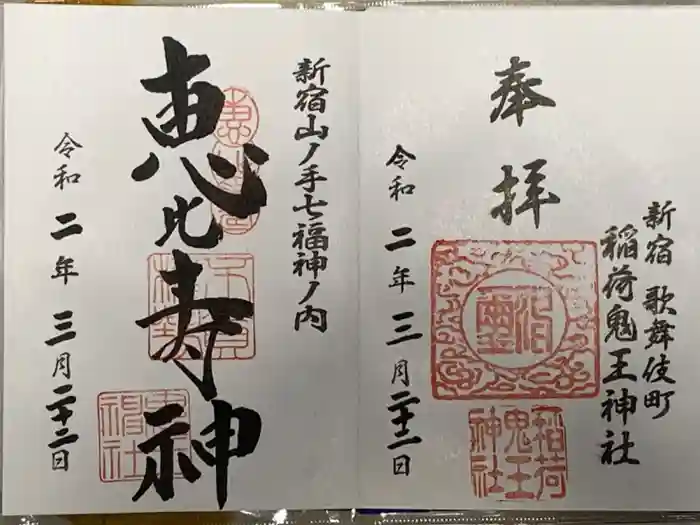 新宿 歌舞伎町
稲荷鬼王神社
奉拝
令和二年三月二十二日
稲荷
鬼王
神社
新宿山ノ手七福神ノ内
恵比寿神
令和二年三月二十二日